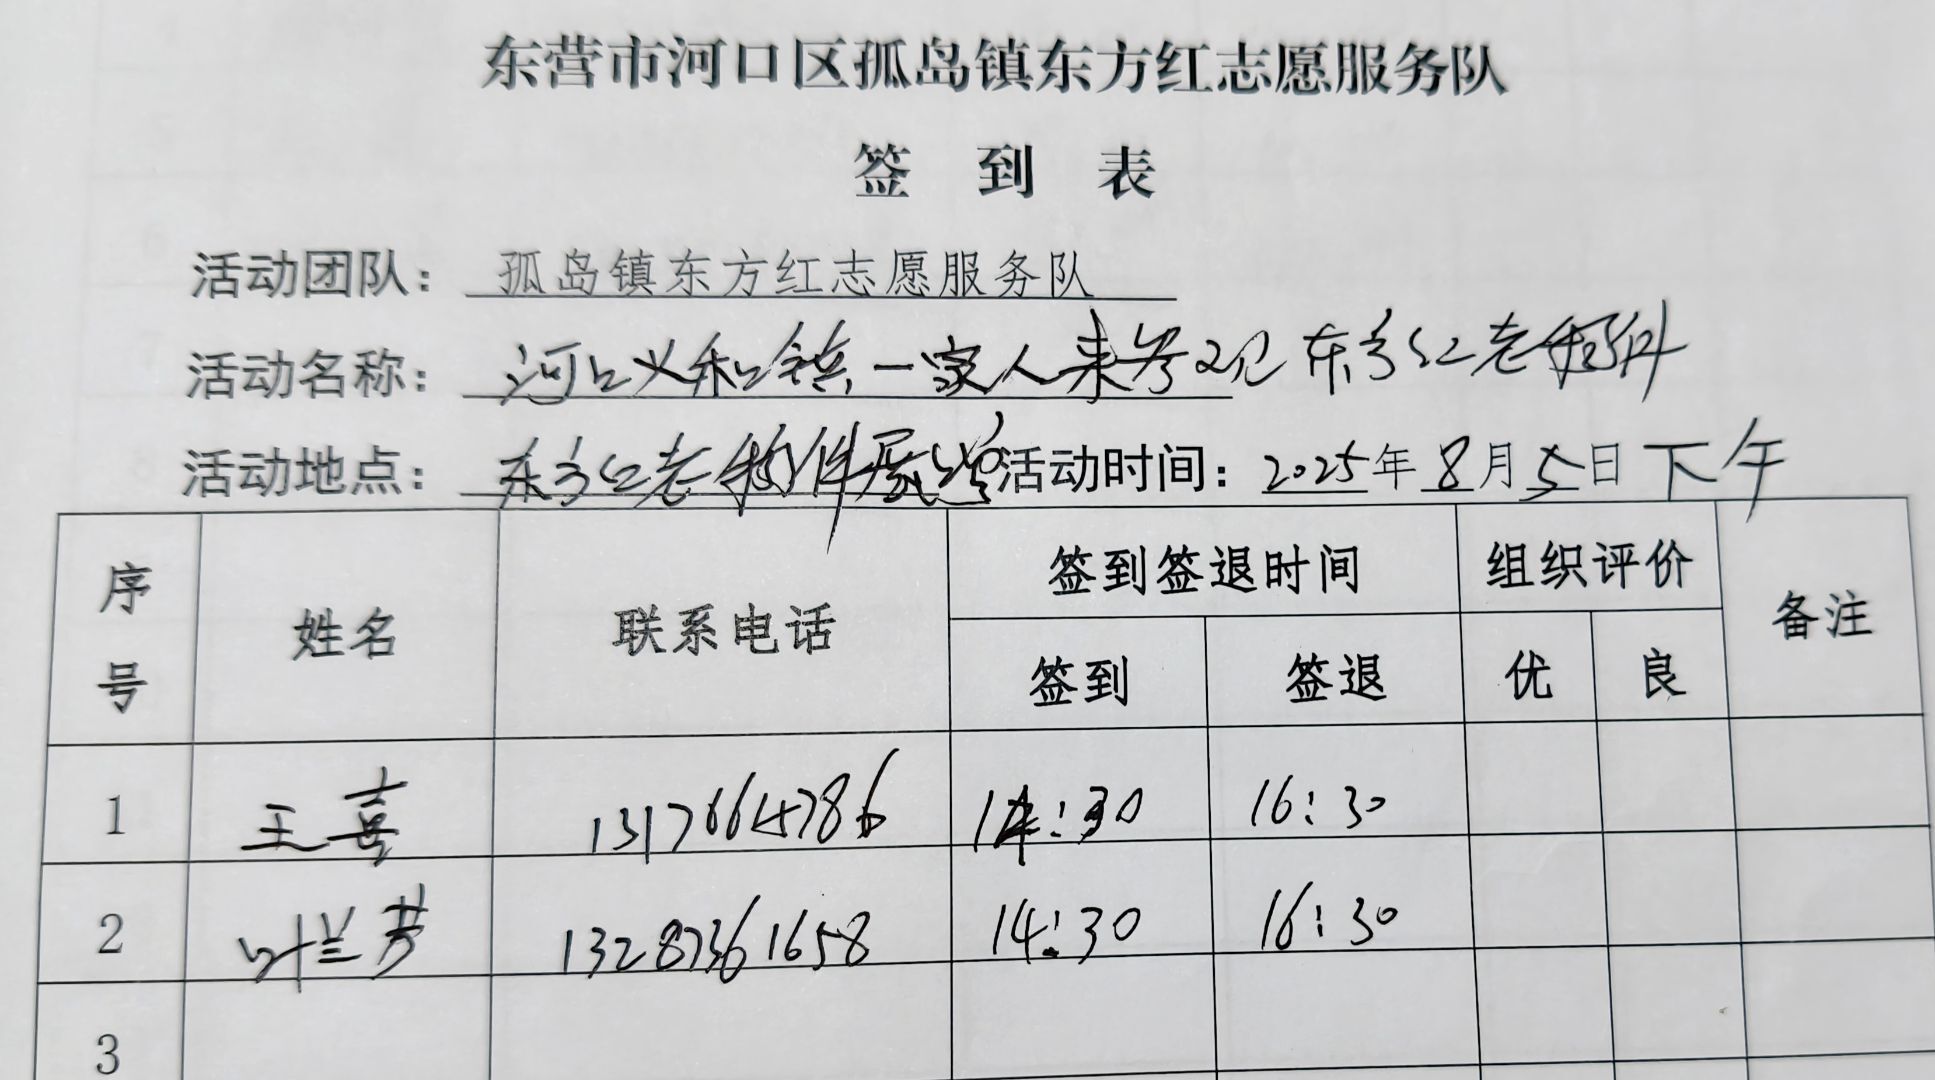 东营市河口区孤岛镇东方红志愿服务队
签 到 表
活动团队: 孤岛镇东方红志愿服务队
活动名称: 河口义和镇一家人来参观东方红老物件
活动地点: 东方红老物件展览 活动时间: 2025年8月5日下午
序号 姓名 联系电话 签到签退时间 组织评价 备注
签到 签退 优 良
1 王喜 13176664786 14:30 16:30
2 叶兰芳 13287361658 14:30 16:30
3